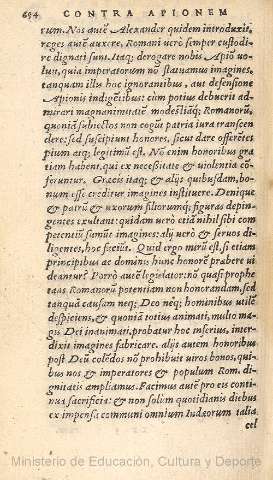 694 CONTRA APIONEM
rum. Nos autē Alexander quidem introduxit,
reges autē auxere, Romani verò semper custodi-
re dignati sunt. Itaq; derogare nobis Apiō vo-
luit, quia imperatorum nō statuamus imagines,
tanquam illu hoc ignorantibus, aut defensione
Apionis indigētibus: cùm potius debuerit ad-
mirari magnanimitatē modestiāq; Romanorū,
quoniā subiectos non cogūt patria iura transcen
dere: sed suscipiunt honores, sicut dare offerētes
pium atq; legitimū est. Nō enim honoribus gra
tiam habent, qui ex necessitate & violentia cō-
feruntur. Græcis itaq; & alijs quibusdam, bo-
num esse creditur imagines instituere. Denique
& patrū & vxorum filiorumq; figuras depin-
gentes exultant: quidam verò etiā nihil sibi com
petentiū sumūt imagines: alij verò & seruos di-
ligentes, hoc faciūt. Quid ergo mirū est, si etiam
principibus ac dominis hunc honorē præbere vi
deantur? Porrò autē legislator: nō quasi prophe
tans Romanorū potentiam non honorandam, sed
tanquā causam neq; Deo neq; hominibus vtilē
despiciens, & quoniā totius animati, multo ma-
gis Dei inanimati, probatur hoc inferius, inter-
dixit imagines fabricare. alijs autem honoribus
post Deū colēdos nō prohibuit viros bonos, qui-
bus nos & imperatores & populum Rom. di-
gnitatis ampliamus. Facimus autē pro eis conti-
nua sacrificia: & non solùm quotidianis diebus
ex impensa communi omnium Iudæorum talia
cel
Ministerio de Educación, Cultura y Deporte